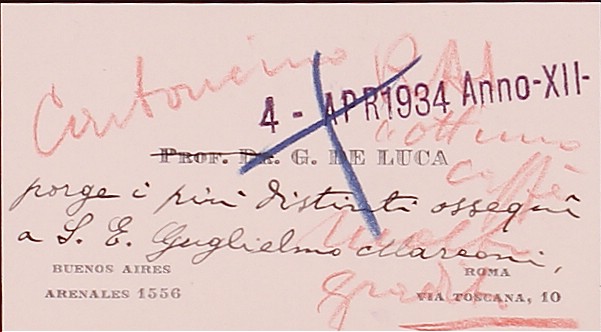 Cartoncino
4 - APR 1934 Anno-XII-
PROF. DR. G. DE LUCA
porge i più distinti ossequi
a S. E. Guglielmo Marconi,
BUENOS AIRES
ARENALES 1556
ROMA
VIA TOSCANA, 10